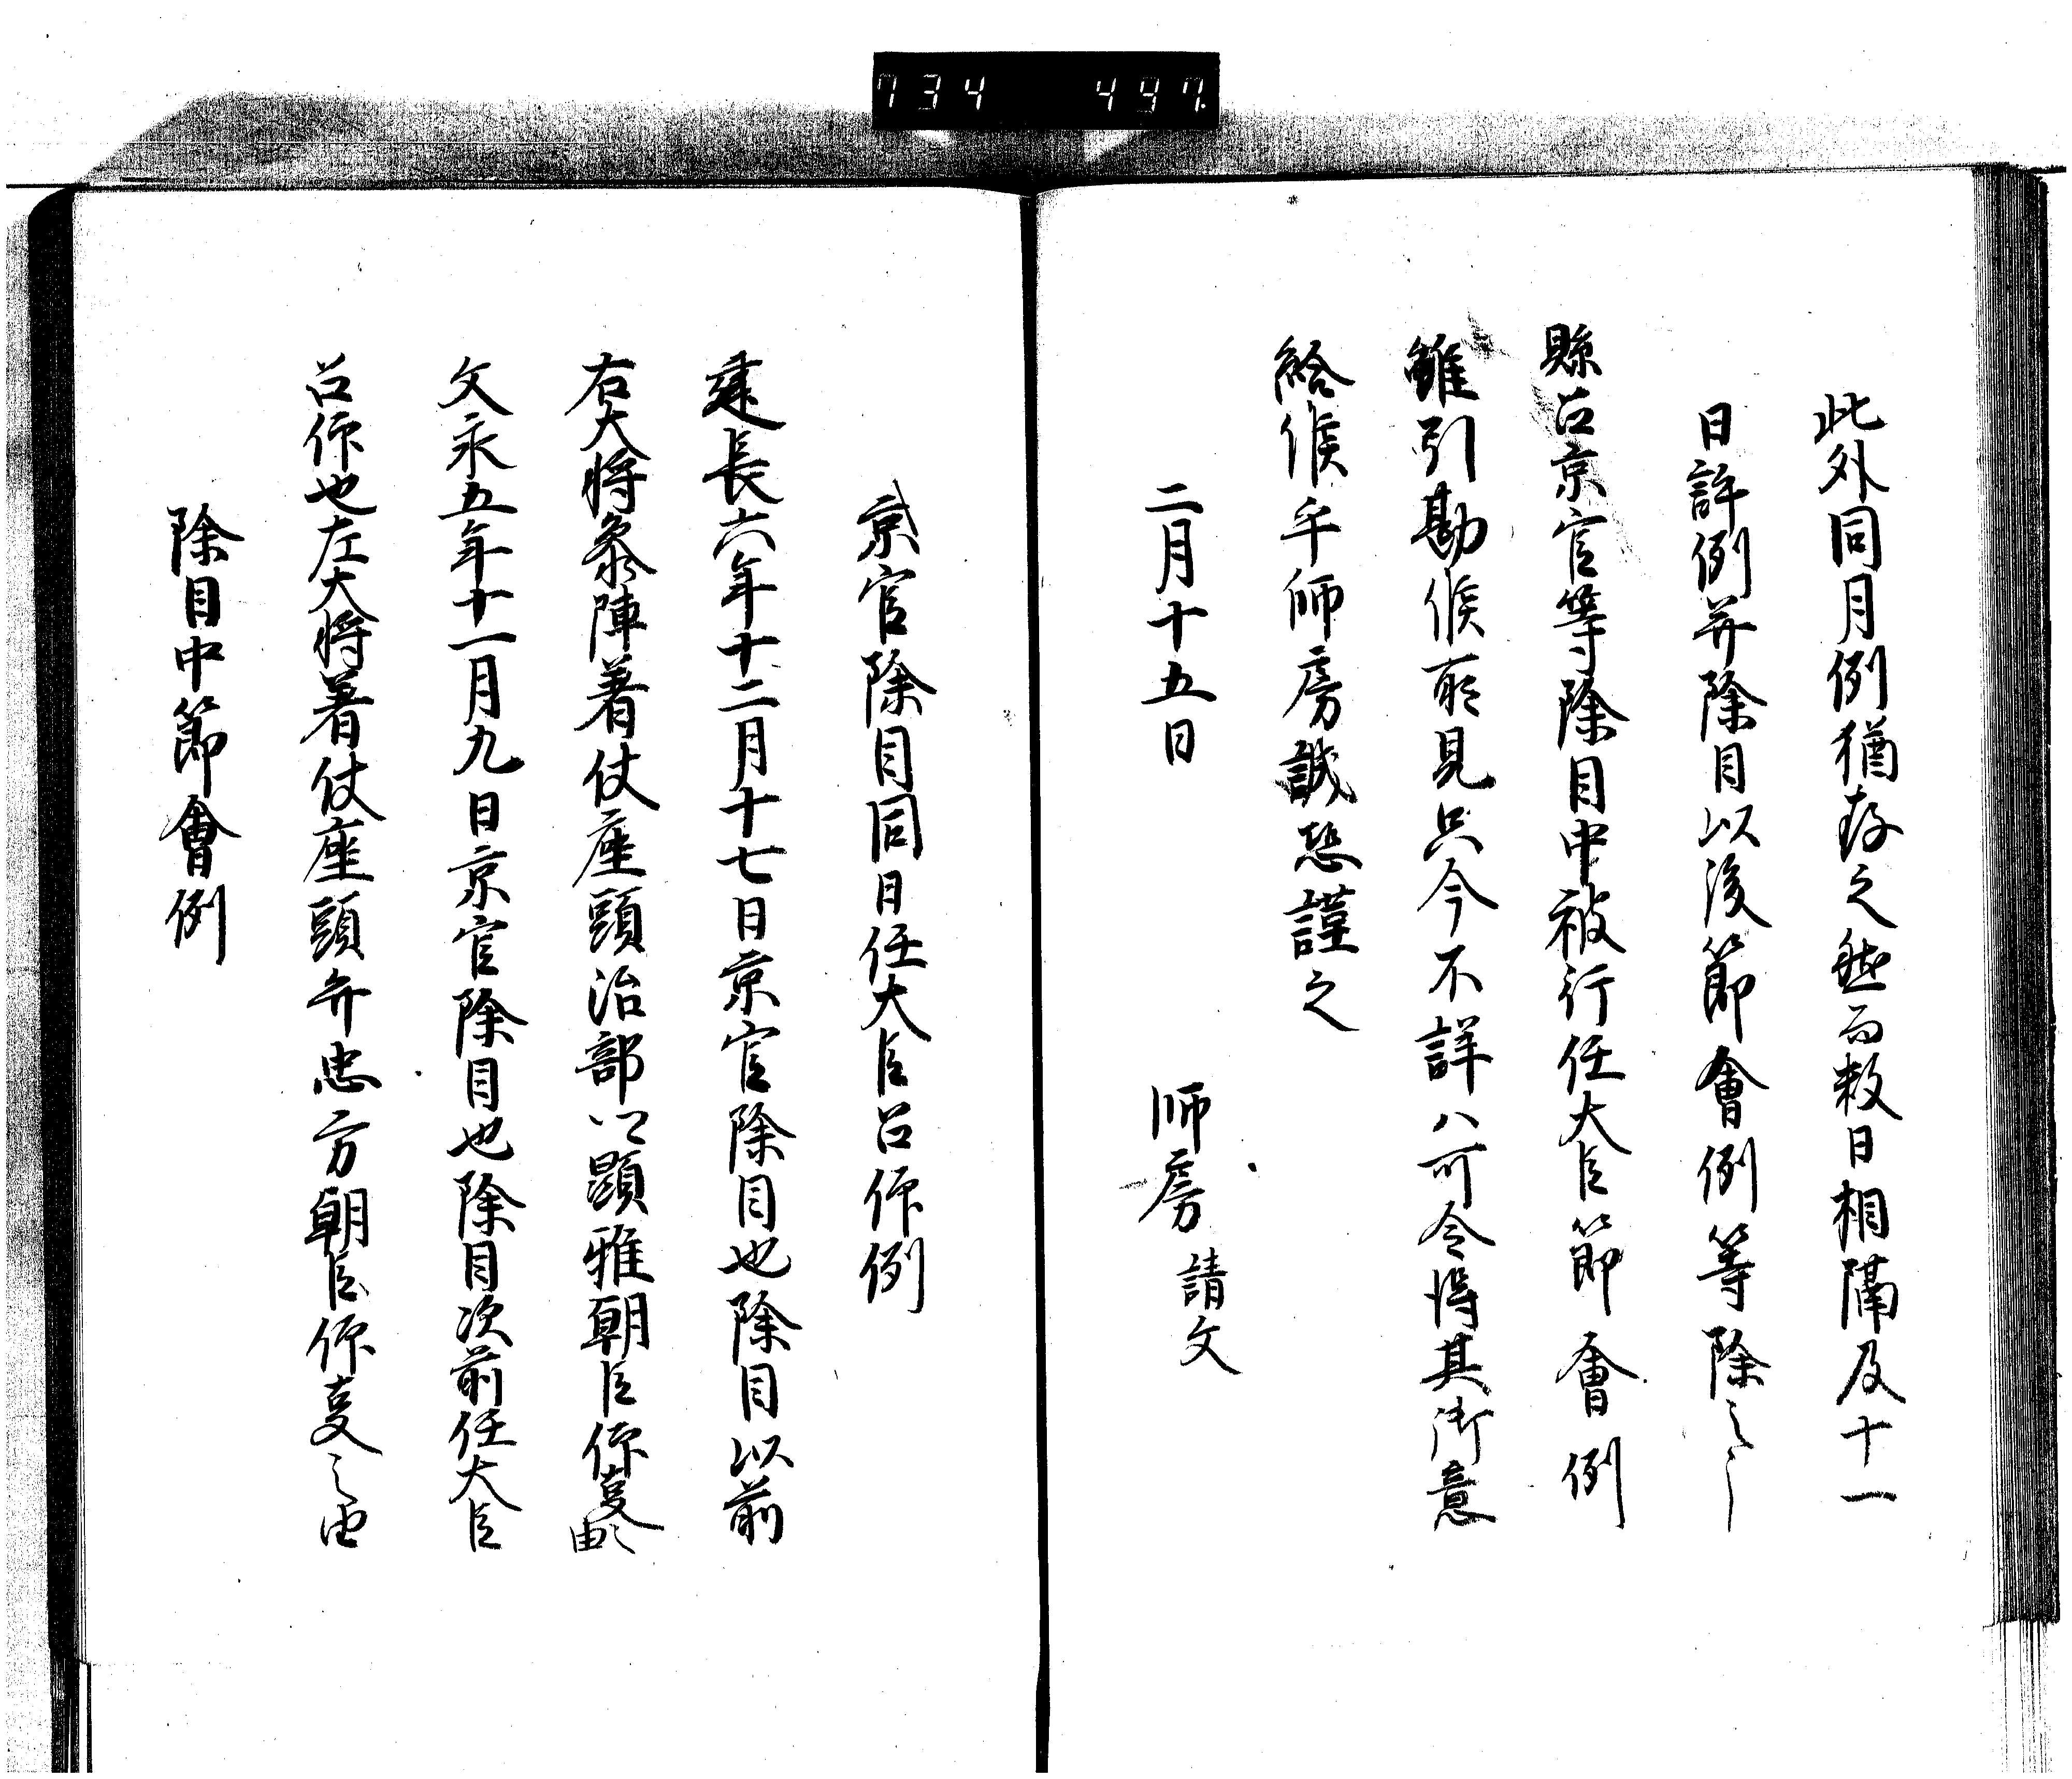 734 497
此外同月例猶存之然而数日相隔及十一
日許例并除目以後節會例等除之
縣召京官等除目中被行任大臣節會例
雖引勘候所見只今不詳候可令得其御意
給候乎師房誠恐謹言
二月十五日
師房請文
京官除目同日任大臣召仰例
建長六年十二月十七日京官除目也除目以前
右大将参陣着仗座頭治部卿顕雅朝臣仰事由
文永五年十一月九日京官除目也除目次前任大臣
召仰也左大将着仗座頭弁忠方朝臣仰事之由
除目中節會例